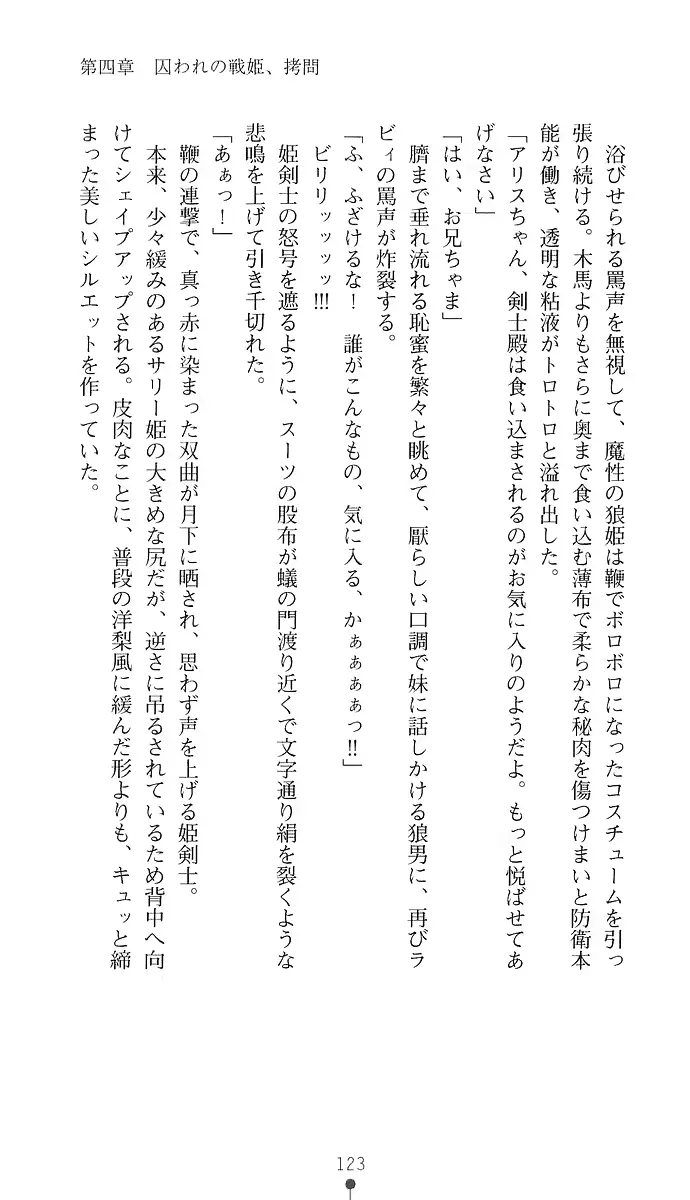 第四章　囚われの戦姫、拷問
　浴びせられる罵声を無視して、魔性の狼姫は鞭でボロボロになったコスチュームを引っ
張り続ける。木馬よりもさらに奥まで食い込む薄布で柔らかな秘肉を傷つけまいと防衛本
能が働き、透明な粘液がトロトロと溢れ出した。
「アリスちゃん、剣士殿は食い込まされるのがお気に入りのようだよ。もっと悦ばせてあ
げなさい」
「はい、お兄ちゃま」
　臍まで垂れ流れる恥蜜を繁々と眺めて、厭らしい口調で妹に話しかける狼男に、再びラ
ビィの罵声が炸裂する。
「ふ、ふざけるな！　誰がこんなもの、気に入る、かぁぁぁぁっ‼」
　ビリリッッッッ!!!
　姫剣士の怒号を遮るように、スーツの股布が蟻の門渡り近くで文字通り絹を裂くような
悲鳴を上げて引き千切れた。
「あぁっ！」
　鞭の連撃で、真っ赤に染まった双曲が月下に晒され、思わず声を上げる姫剣士。
　本来、少々緩みのあるサリー姫の大きめな尻だが、逆さに吊るされているため背中へ向
けてシェイプアップされる。皮肉なことに、普段の洋梨風に緩んだ形よりも、キュッと締
まった美しいシルエットを作っていた。
123